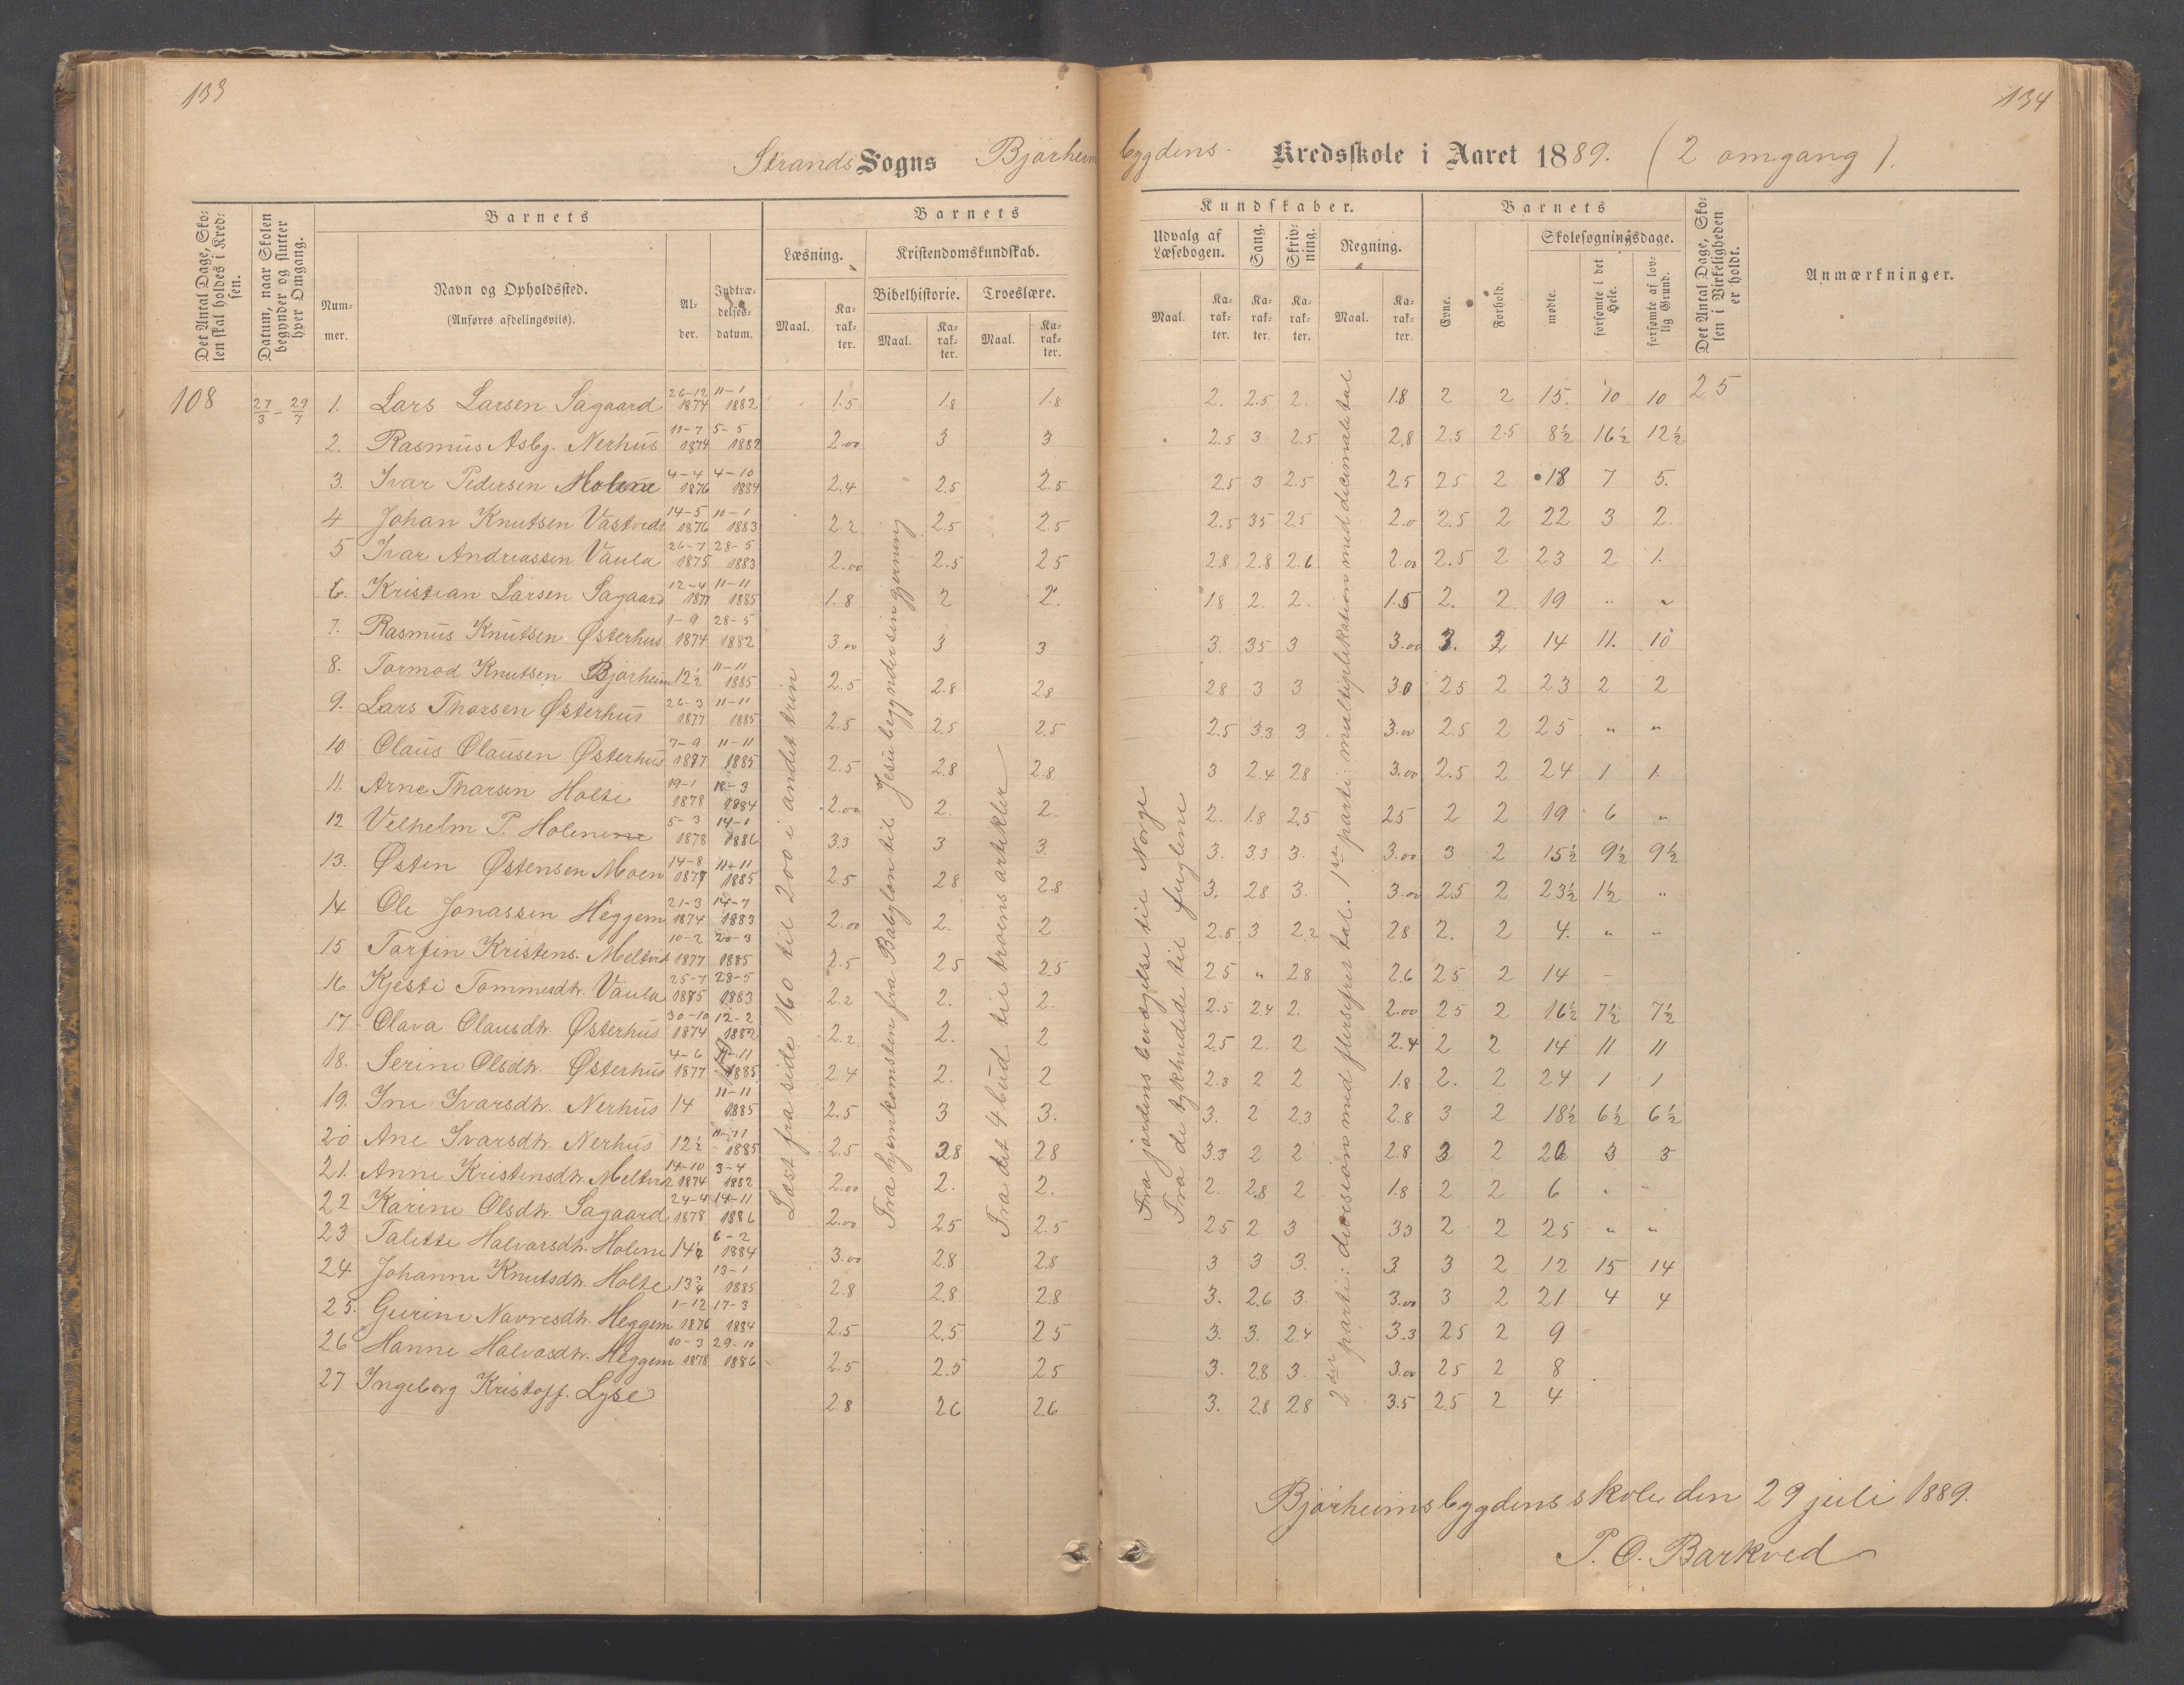 133
134
Strands Sogns Bjørheims
bygdens Kredsskole i Aaret 1889. (2 omgang).
Det Antal Dage, Skolen skal holdes i Kredsen.
Datum, naar Skolen begynder og slutter hver Omgang.
Barnets
Nummer.
Navn og Opholdssted.
(Anføres afdelingsviis).
Alder.
Indtrædelsesdatum.
Barnets
Læsning.
Maal.
Karakter.
Kristendomskundskab.
Bibelhistorie.
Maal.
Karakter.
Troeslære.
Maal.
Karakter.
Kundskaber.
Udvalg af Læsebogen.
Maal.
Karakter.
Sang.
Karakter.
Skrivning.
Karakter.
Regning.
Maal.
Karakter.
Barnets
Evne.
Forhold.
Skolesøgningsdage.
mødte.
forsømte i det Hele.
forsømte af lovlig Grund.
Det Antal Dage, Skolen i Virkeligheden er holdt.
Anmærkninger.
108 27/3 – 29/7 1. Lars Larsen Sagaard 26-12 1874 11-1 1882 1.5 1.8 1.8 2. 2.5 2. 1.8 2 2 15. 10 10 25
2. Rasmus Asbg. Nerhus 11-7 1874 5-5 1882 2.00 3 3 2.5 3 2.5 2.8 2.5 2.5 8½ 16½ 12½
3. Ivar Pedersen Holene 4-4 1876 4-10 1884 2.4 2.5 2.5 2.5 3 2.5 2.5 25 2 18 7 5.
4 Johan Knutsen Vastvedt 14-5 1876 10-1 1883 2.2 2.5 2.5 2.5 35 25 2.0 2.5 2 22 3 2.
5 Ivar Andreassen Vaula 26-7 1875 28-5 1883 2.00 2.5 25 28 2.8 2.6 2.00 2.5 2 23 2 1.
6. Kristian Larsen Sagaard 12-4 1877 11-11 1885 1.8 2 2. 18 2. 2. 1.5 2. 2. 19 " "
7. Rasmus Knutsen Østerhus 1-9 1874 28-5 1882 3.00 3 3 3. 35 3 3.00 3. 2 14 11. 10
8. Tormod Knutsen Bjørheim 12½ 11-11 1885 2.5 2.8 28 28 3 3 3.0 25 2 23 2 2
9. Lars Thorsen Østerhus 26-3 1877 11-11 1885 2.5 2.5 2.5 2.5 3.3 3 3.00 2.5 2 25 " "
10 Olaus Olausen Østerhus 7-9 1877 11-11 1885 2.5 28 2.8 3 2.4 28 3.00 2.5 2 24 1 1.
11. Arne Thorsen Holte 19-1 1878 18-3 1884 2.00 2. 2. 2. 1.8 2.5 25 2 2 19 6 "
12 Velhelm P. Holene 5-3 1878 14-1 1886 3.3 3 3. 3. 3.3 3. 3.00 3 2 15½ 9½ 9½
13. Østen Østensen Moen 14-8 1877 11-11 1885 2.5 28 2.8 3. 28 3. 3.00 25 2 23½ 1½ "
14 Ole Jonassen Heggem 21-3 1874 14-7 1883 2.00 2. 2 2.5 3 22 28 2. 2 4. " "
15 Torfin Kristens. Meltvedt 10-2 1877 20-3 1885 2.5 25 2.5 25 " 28 2.6 25 2 14 –
16 Kjesti Tommesdtr. Vaula 25-7 1875 28-5 1883 2.2 2. 2. 2.5 2.4 2. 2.00 25 2 16½ 7½ 7½
17 Olava Olausdtr. Østerhus 30-10 1874 12-2 1882 2.2 2. 2 25 2. 2 2.4 2 2 14 11 11
18. Serine Olsdtr. Østerhus 4-6 1877 11-11 1885 2.4 2. 2 2.3 2 2 1.8 2. 2 24 1 1
19. Ine Ivarsdtr. Nerhus 14 11-11 1885 2.5 3 3. 3. 2 2.3 2.8 3 2 18½ 6½ 6½
20 Ane Ivarsdtr. Nerhus 12½ 11-11 1885 2.5 28 28 3.3 2 2 2.8 3 2 20 3 3
21. Anne Kristensdtr. Meltvedt 14-10 1874 3-4 1882 2.00 2. 2. 2. 2.8 2 1.8 2 2 6 " –
22 Karine Olsdtr. Sagaard 24-4 1878 14-11 1886 2.00 25 2.5 25 2 3 33 2 2 25 " "
23 Talette Halvarsdtr. Holene 14½ 6-2 1884 3.00 28 28 3 3 3. 3. 3 2 12 15 14
24 Johanne Knutsdtr. Holte 13¾ 13-1 1885 2.8 2.8 2.8 3. 2.6 3. 3.00 3 2 21 4 4
25. Gurine Navresdtr. Heggem 1-12 1876 17-3 1884 2.5 2.5 25 3. 3. 2.4 3.3 25 2 9
26 Hanne Halvasdtr. Heggem 10-3 1878 29-10 1886 2.5 2.5 25 3. 28 3. 3.00 25 2 8
27 Ingeborg Kristoff. Lyse 2.8 26 26 3. 28 28 3.5 2.5 2 4
Læst fra side 160 til 200 i andet trin
Fra hjemkomsten fra Babylon til Jesu begynder sin gjerning
Fra det 4 bud til troens artikler
Fra jordens bevægelse til Norge
Fra de tykhudede til fuglene
1ste parti: multiplikation med decimaltal
2det parti: division med flersifret tal.
Bjørheimsbygdens skole den 29 juli 1889.
P. O. Barkved